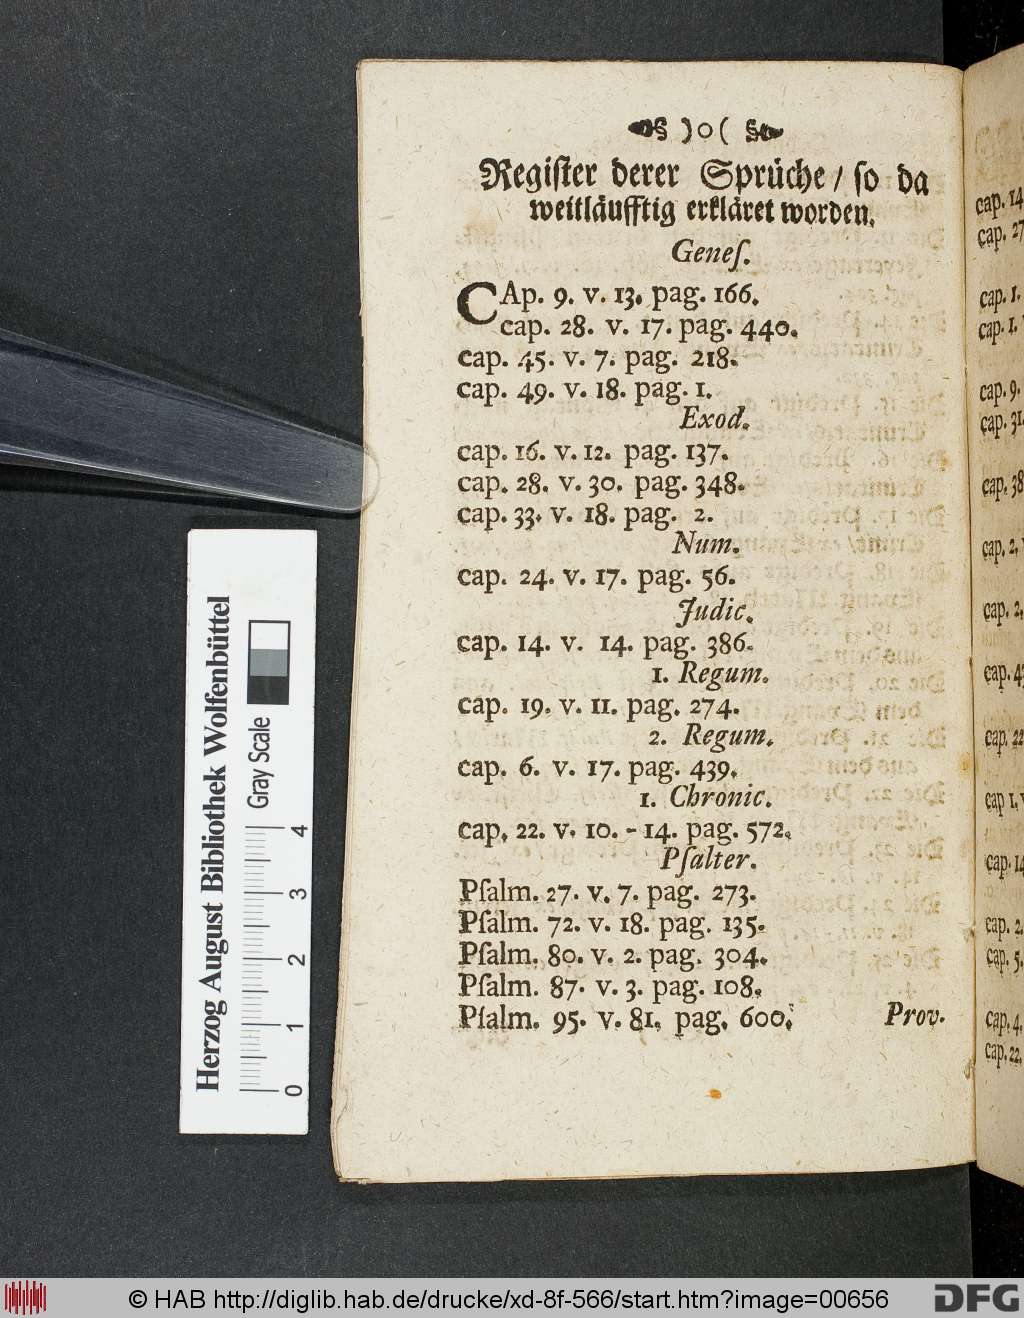 )o(
Regiſter derer Sprüche / ſo da
weitläufftig erkläret worden.
Geneſ.
CAp. 9. v. 13. pag. 166.
cap. 28. v. 17. pag. 440.
cap. 45. v. 7. pag. 218.
cap. 49. v. 18. pag. 1.
Exod.
cap. 16. v. 12. pag. 137.
cap. 28. v. 30. pag. 348.
cap. 33. v. 18. pag. 2.
Num.
cap. 24. v. 17. pag. 56.
Judic.
cap. 14. v. 14. pag. 386.
1. Regum.
cap. 19. v. 11. pag. 274.
2. Regum.
cap. 6. v. 17. pag. 439.
1. Chronic.
cap. 22. v. 10. - 14. pag. 572.
Pſalter.
Pſalm. 27. v. 7. pag. 273.
Pſalm. 72. v. 18. pag. 135.
Pſalm. 80. v. 2. pag. 304.
Pſalm. 87. v. 3. pag. 108.
Pſalm. 95. v. 81. pag. 600.
Prov.
cap. 14
cap. 27
cap. 1.
cap. 1.
cap. 9.
cap. 31.
cap. 38
cap. 2. v
cap. 2.
cap. 22
cap 1. v
cap. 14
cap. 2.
cap. 5.
cap. 4.
cap. 22.
Herzog August Bibliothek Wolfenbüttel
Gray Scale
0 1 2 3 4
© HAB http://diglib.hab.de/drucke/xd-8f-566/start.htm?image=00656
DFG